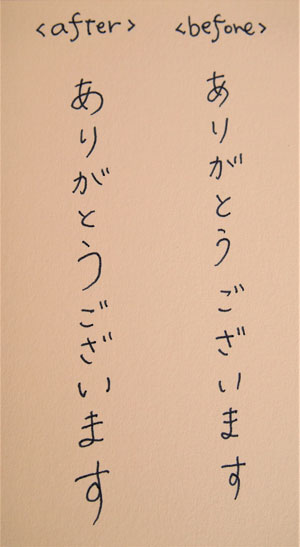 <before>
ありがとうございます
<after>
ありがとうございます